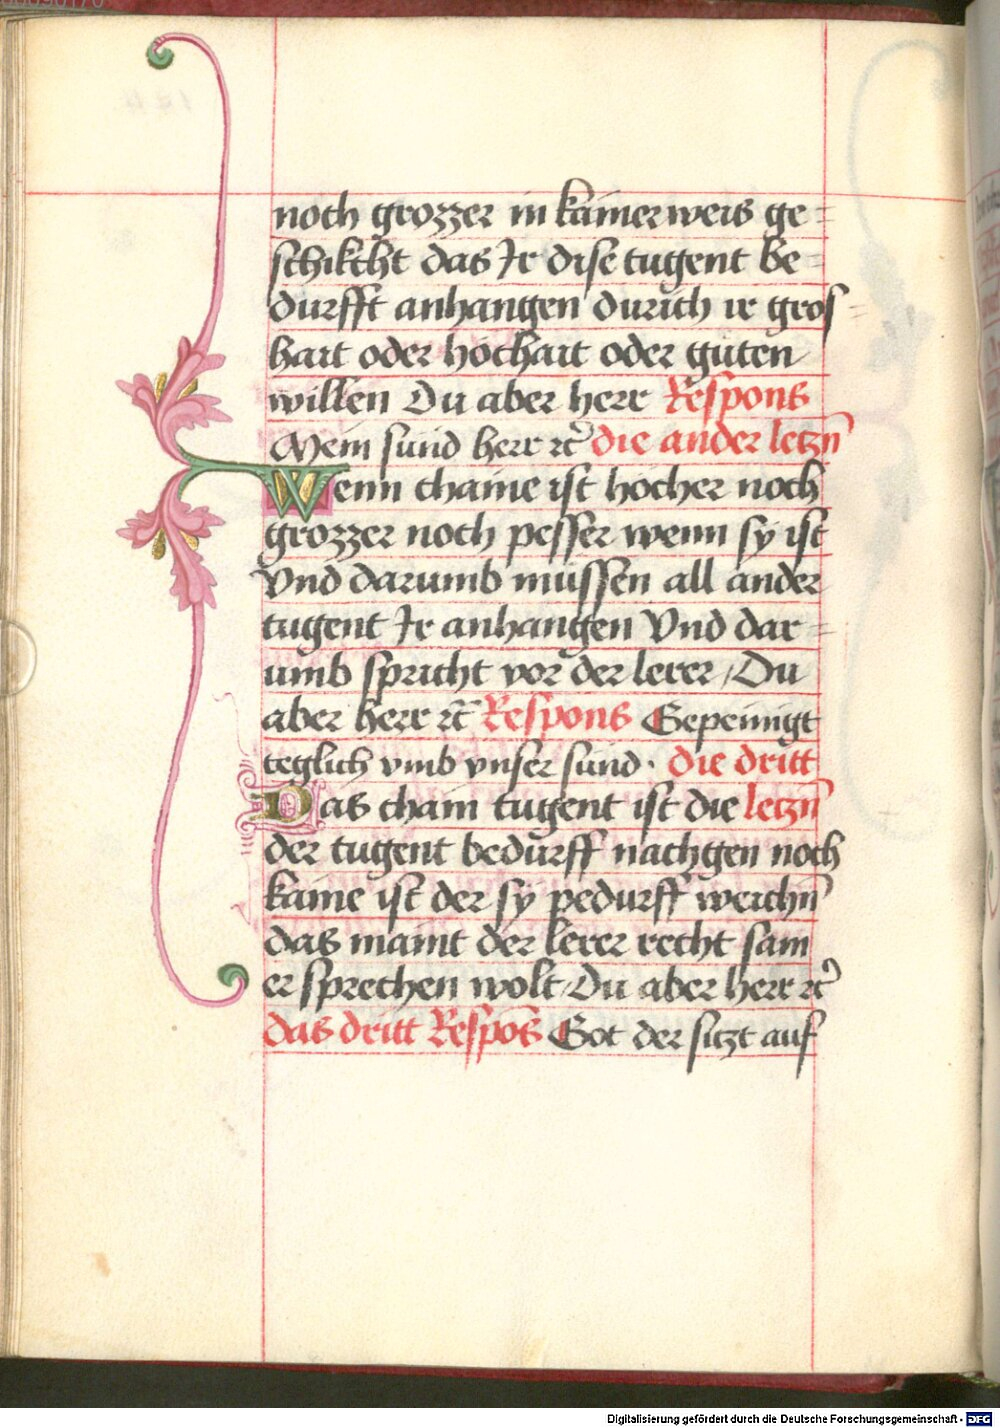 noch grozzer in kainer weis ge=
schikcht das Ir dise tugent be=
durfft anhangen durich ir gros=
hait oder hochait oder guten
willen Du aber herr Respons
Mein sund herr ꝛc̄ die ander letzn̄
Wenn chaine ist hocher noch
grozzer noch pesser wenn sy ist
Vnd darumb mussen all ander
tugent Ir anhangen Vnd dar=
umb spricht vor der lerer / Du
aber herr ꝛc̄ Respons Gepeinigt
teglich vmb vnser sund · die dritt
Das cham tugent ist die letzn̄
der tugent bedurff nachgen noch
kaine ist der sy pedurff weichn̄
das maint der lerer recht sam
er sprechen wolt / Du aber herr ꝛc̄
das dritt Respos̄ Got der sitzt auf
Digitalisierung gefördert durch die Deutsche Forschungsgemeinschaft - DFG